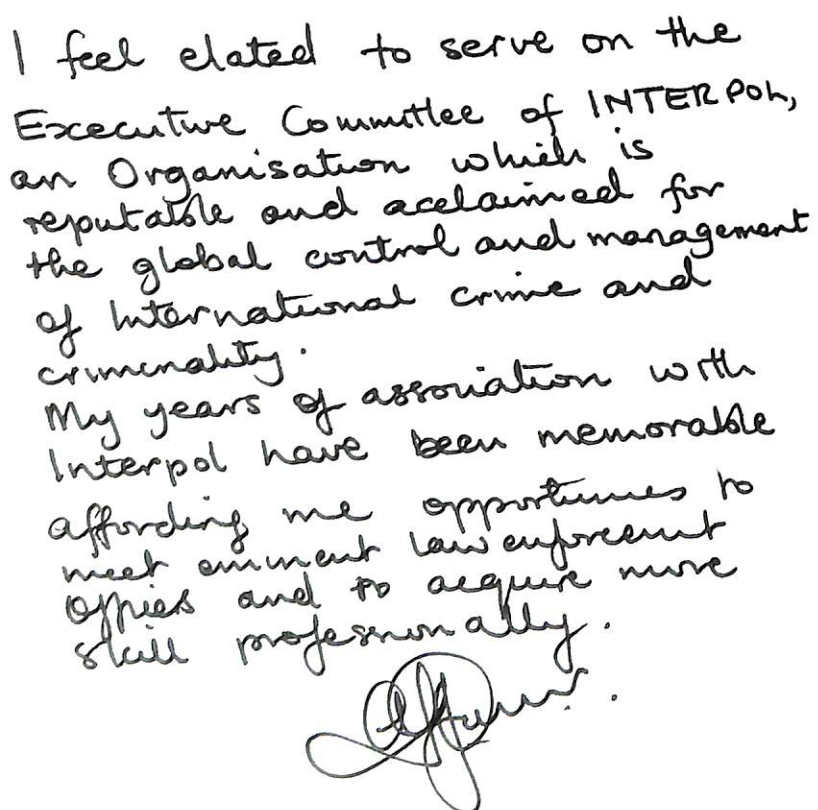 I feel elated to serve on the
Executive Committee of INTERPOL,
an Organisation which is
reputable and acclaimed for
the global control and management
of International crime and
criminality.
My years of association with
Interpol have been memorable
affording me opportunities to
meet eminent law enforcement
Officers and to acquire more
skill professionally.